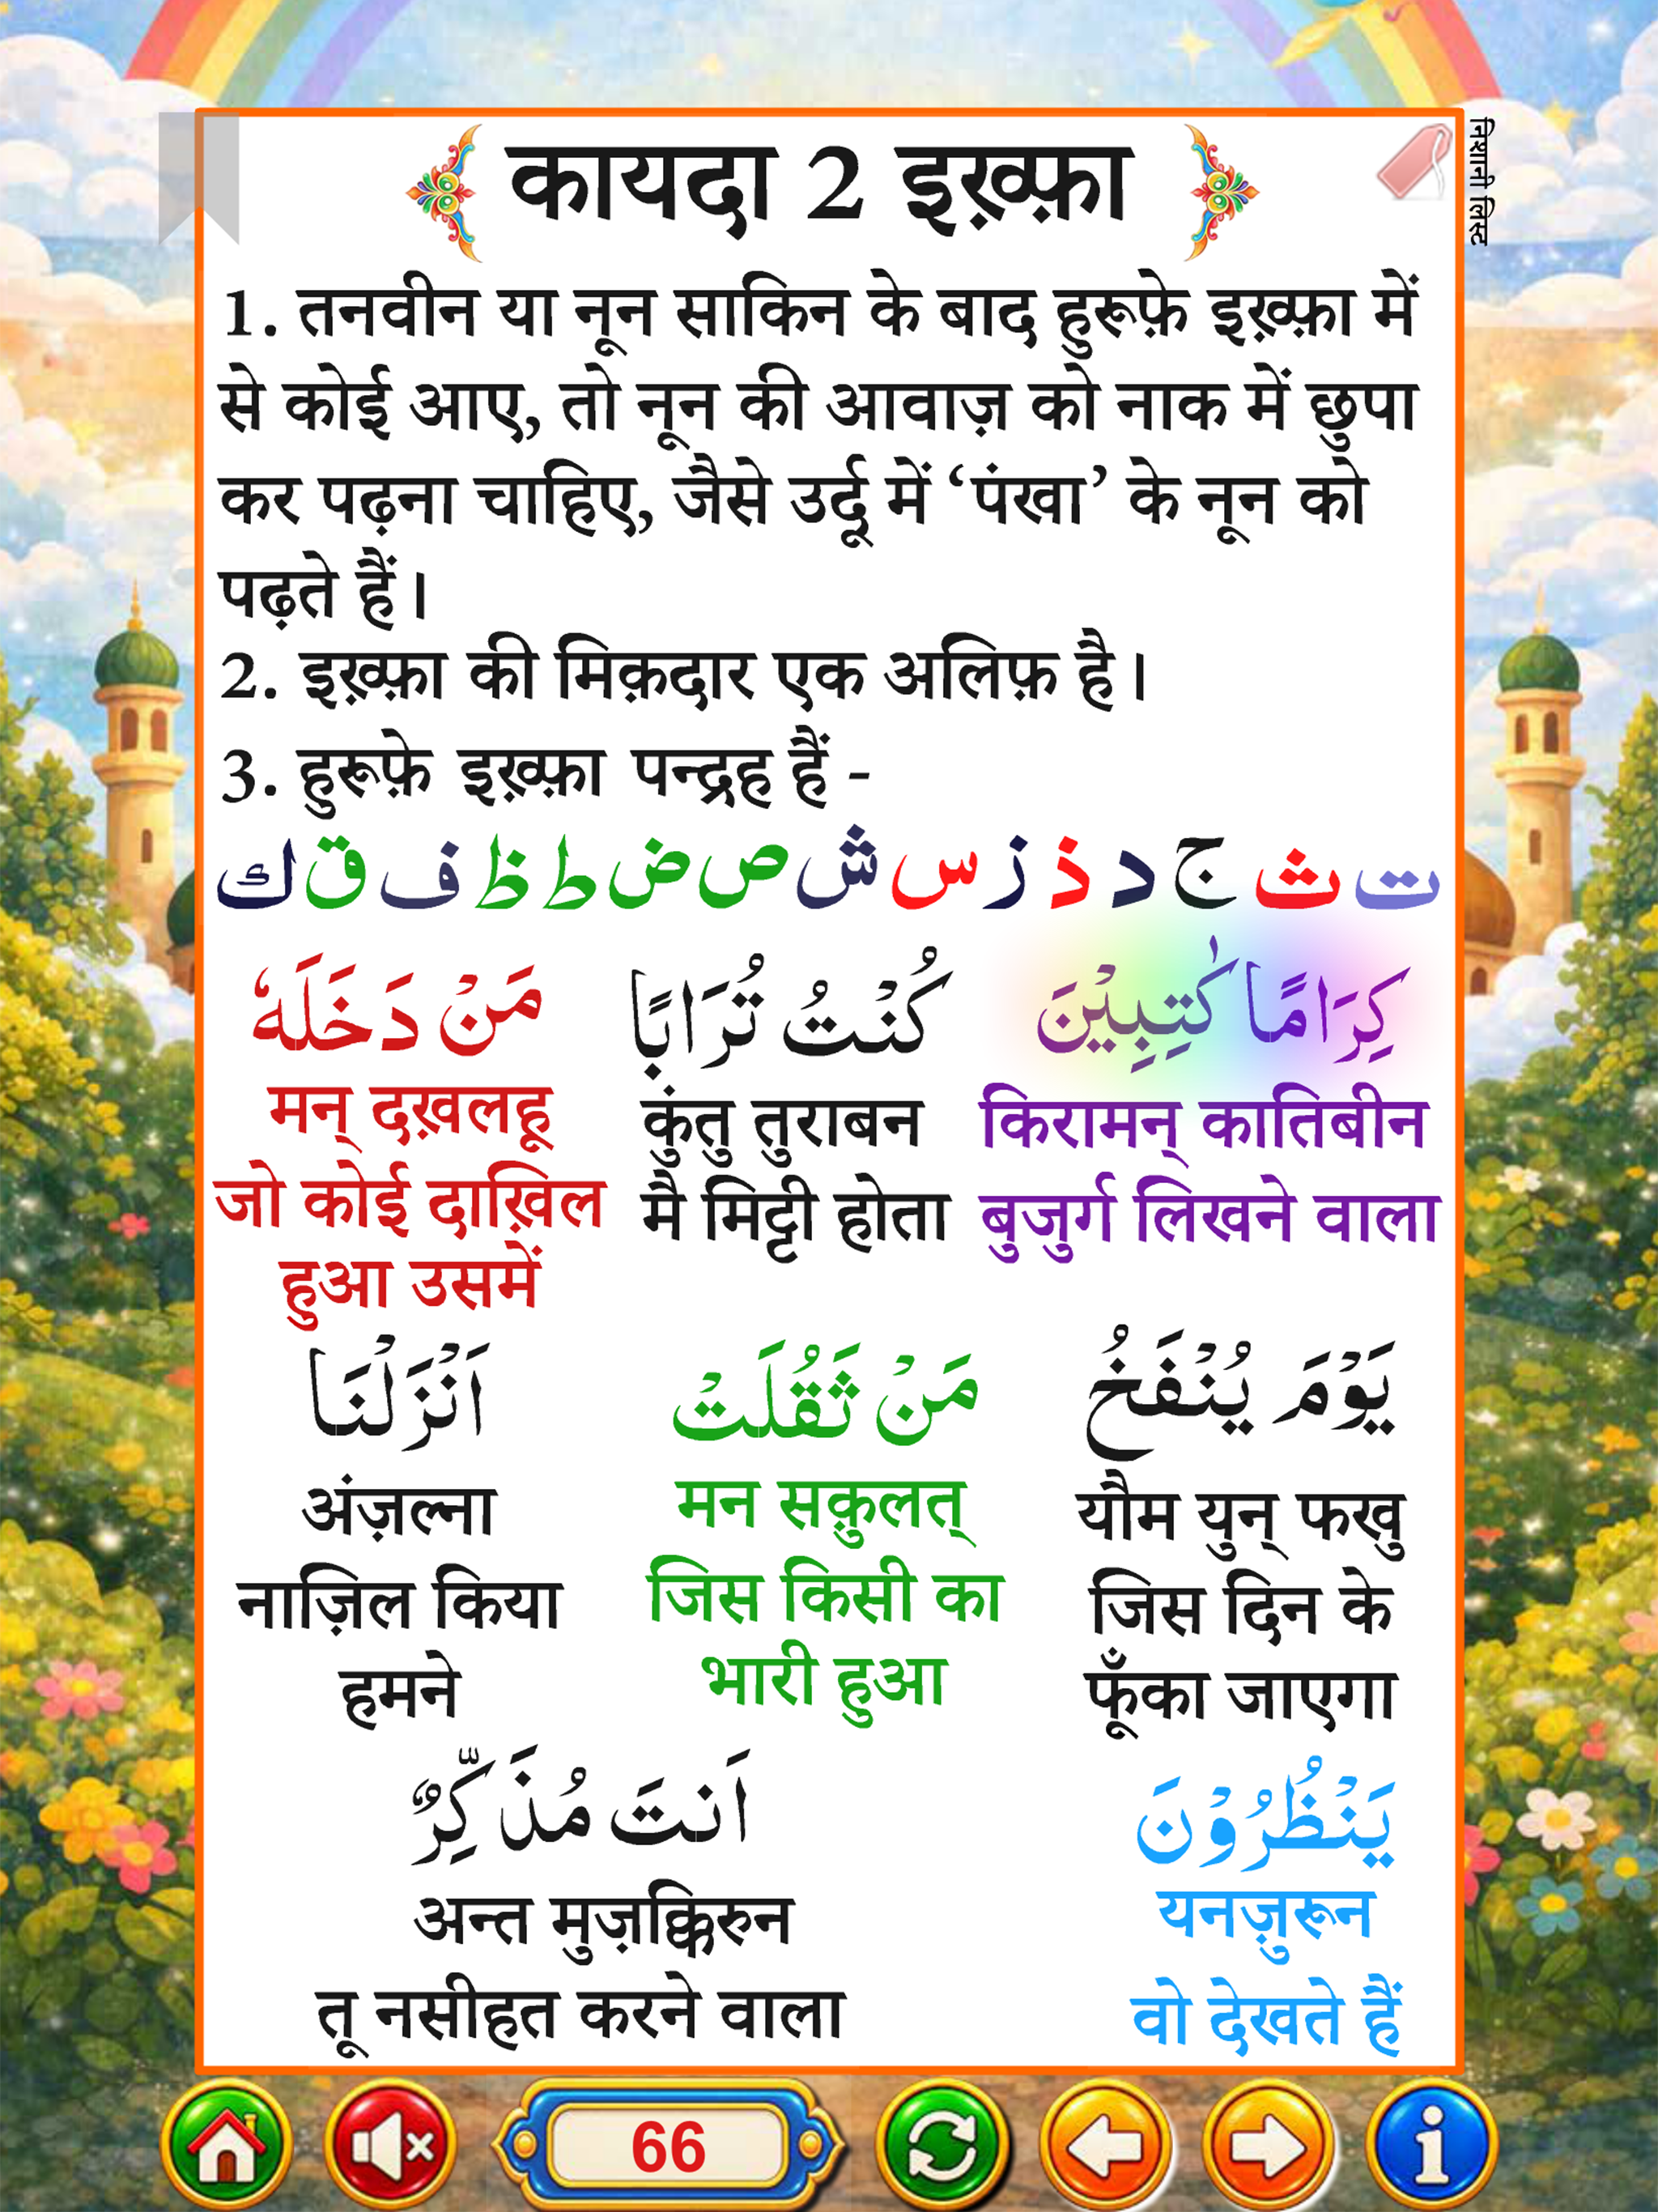 कायदा 2 इख़्फ़ा
निशानी लिस्ट
1. तनवीन या नून साकिन के बाद हुरूफ़े इख़्फ़ा में
से कोई आए, तो नून की आवाज़ को नाक में छुपा
कर पढ़ना चाहिए, जैसे उर्दू में ‘पंखा’ के नून को
पढ़ते हैं।
2. इख़्फ़ा की मिक़दार एक अलिफ़ है।
3. हुरूफ़े इख़्फ़ा पन्द्रह हैं -
ت ث ج د ذ ز س ش ص ض ط ظ ف ق ك
كِرَامًا كٰتِبِيْنَ
किरामन् कातिबीन
बुजुर्ग लिखने वाला
كُنْتُ تُرَابًا
कुंतु तुराबन
मै मिट्टी होता
مَنْ دَخَلَهٗ
मन् दख़लहू
जो कोई दाख़िल
हुआ उसमें
يَوْمَ يُنْفَخُ
यौम युन् फखु
जिस दिन के
फूँका जाएगा
مَنْ ثَقُلَتْ
मन सक़ुलत्
जिस किसी का
भारी हुआ
اَنْزَلْنَا
अंज़ल्ना
नाज़िल किया
हमने
يَنْظُرُوْنَ
यनज़ुरून
वो देखते हैं
اَنتَ مُذَكِّرٌ
अन्त मुज़क्किरुन
तू नसीहत करने वाला
66